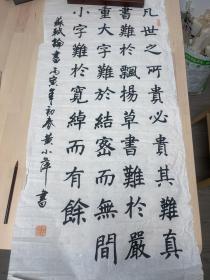 凡世之所貴必貴其難真
書難於飄揚草書難於嚴
重大字難於結密而無間
小字難於寬綽而有餘
蘇軾論書丙寅年初春黃小萍書